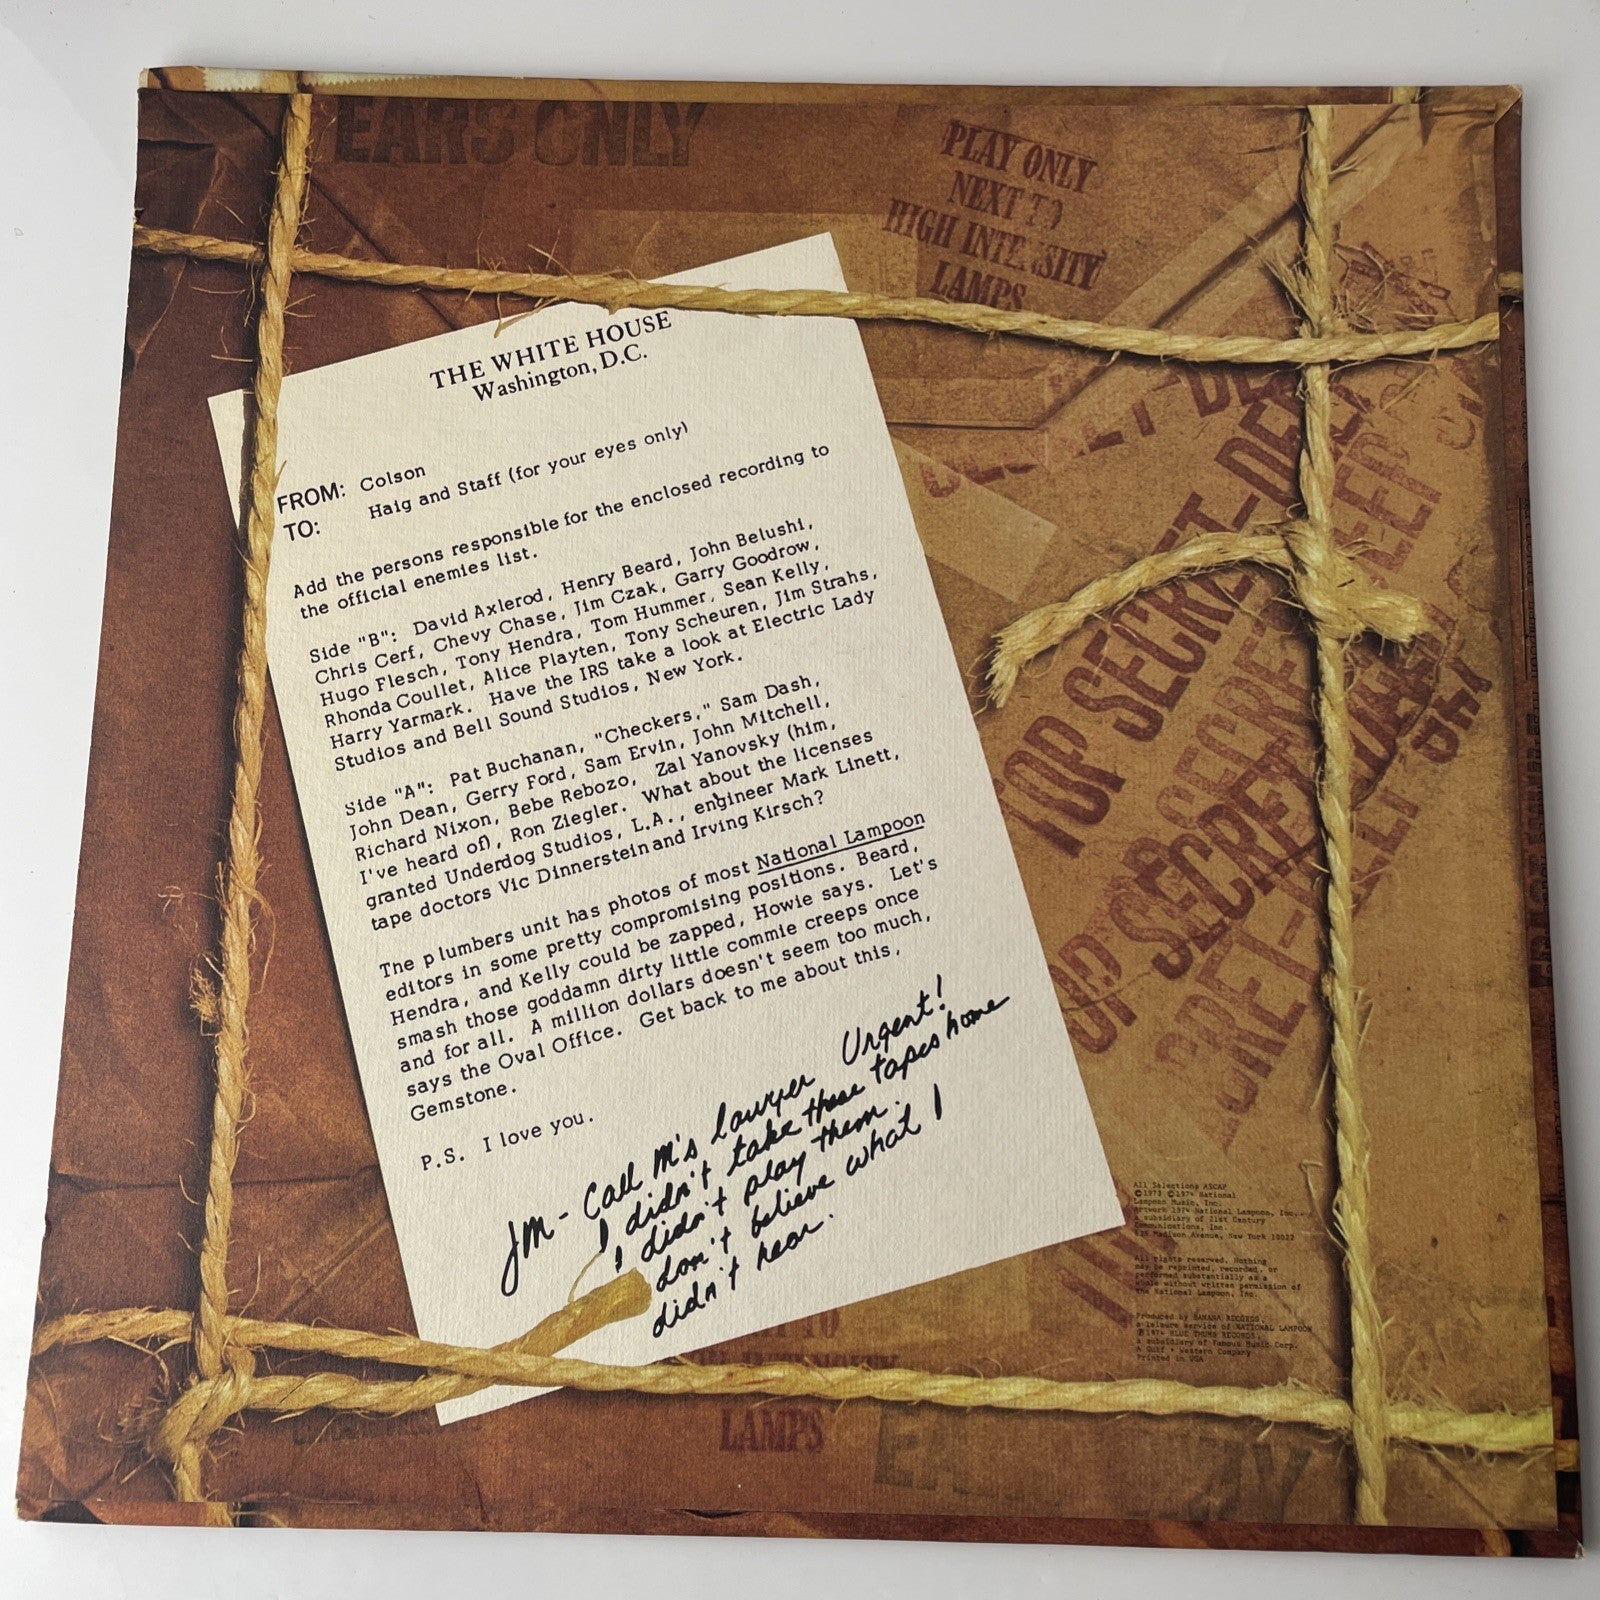 EARS ONLY
PLAY ONLY
NEXT TO
HIGH INTENSITY
LAMPS
THE WHITE HOUSE
Washington, D.C.
FROM: Colson
TO: Haig and Staff (for your eyes only)
Add the persons responsible for the enclosed recording to
the official enemies list.
Side "B": David Axlerod, Henry Beard, John Belushi,
Chris Cerf, Chevy Chase, Jim Czak, Garry Goodrow,
Hugo Flesch, Tony Hendra, Tom Hummer, Sean Kelly,
Rhonda Coullet, Alice Playten, Tony Scheuren, Jim Strahs,
Harry Yarmark. Have the IRS take a look at Electric Lady
Studios and Bell Sound Studios, New York.
Side "A": Pat Buchanan, "Checkers," Sam Dash,
John Dean, Gerry Ford, Sam Ervin, John Mitchell,
Richard Nixon, Bebe Rebozo, Zal Yanovsky (him,
I've heard of), Ron Ziegler. What about the licenses
granted Underdog Studios, L.A., engineer Mark Linett,
tape doctors Vic Dinnerstein and Irving Kirsch?
The plumbers unit has photos of most National Lampoon
editors in some pretty compromising positions. Beard,
Hendra, and Kelly could be zapped, Howie says. Let's
smash those goddamn dirty little commie creeps once
and for all. A million dollars doesn't seem too much,
says the Oval Office. Get back to me about this,
Gemstone.
P.S. I love you.
JM - Call M's lawyer Urgent!
I didn't take those tapes home
I didn't play them.
don't believe what I
didn't hear.
TOP SECRET-DE
TOP SECRET
LAMPS
All Selections ASCAP
©1973 ©1974 National
Lampoon Music, Inc.
Artwork 1974 National Lampoon, Inc.,
a subsidiary of 21st Century
Communications, Inc.
635 Madison Avenue, New York 10022
All rights reserved. Nothing
may be reprinted, recorded, or
performed substantially as a
whole without written permission of
the National Lampoon, Inc.
Produced by BANANA RECORDS,
a leisure service of NATIONAL LAMPOON
℗1974 BLUE THUMB RECORDS,
a subsidiary of Famous Music Corp.
A Gulf + Western Company
Printed in USA